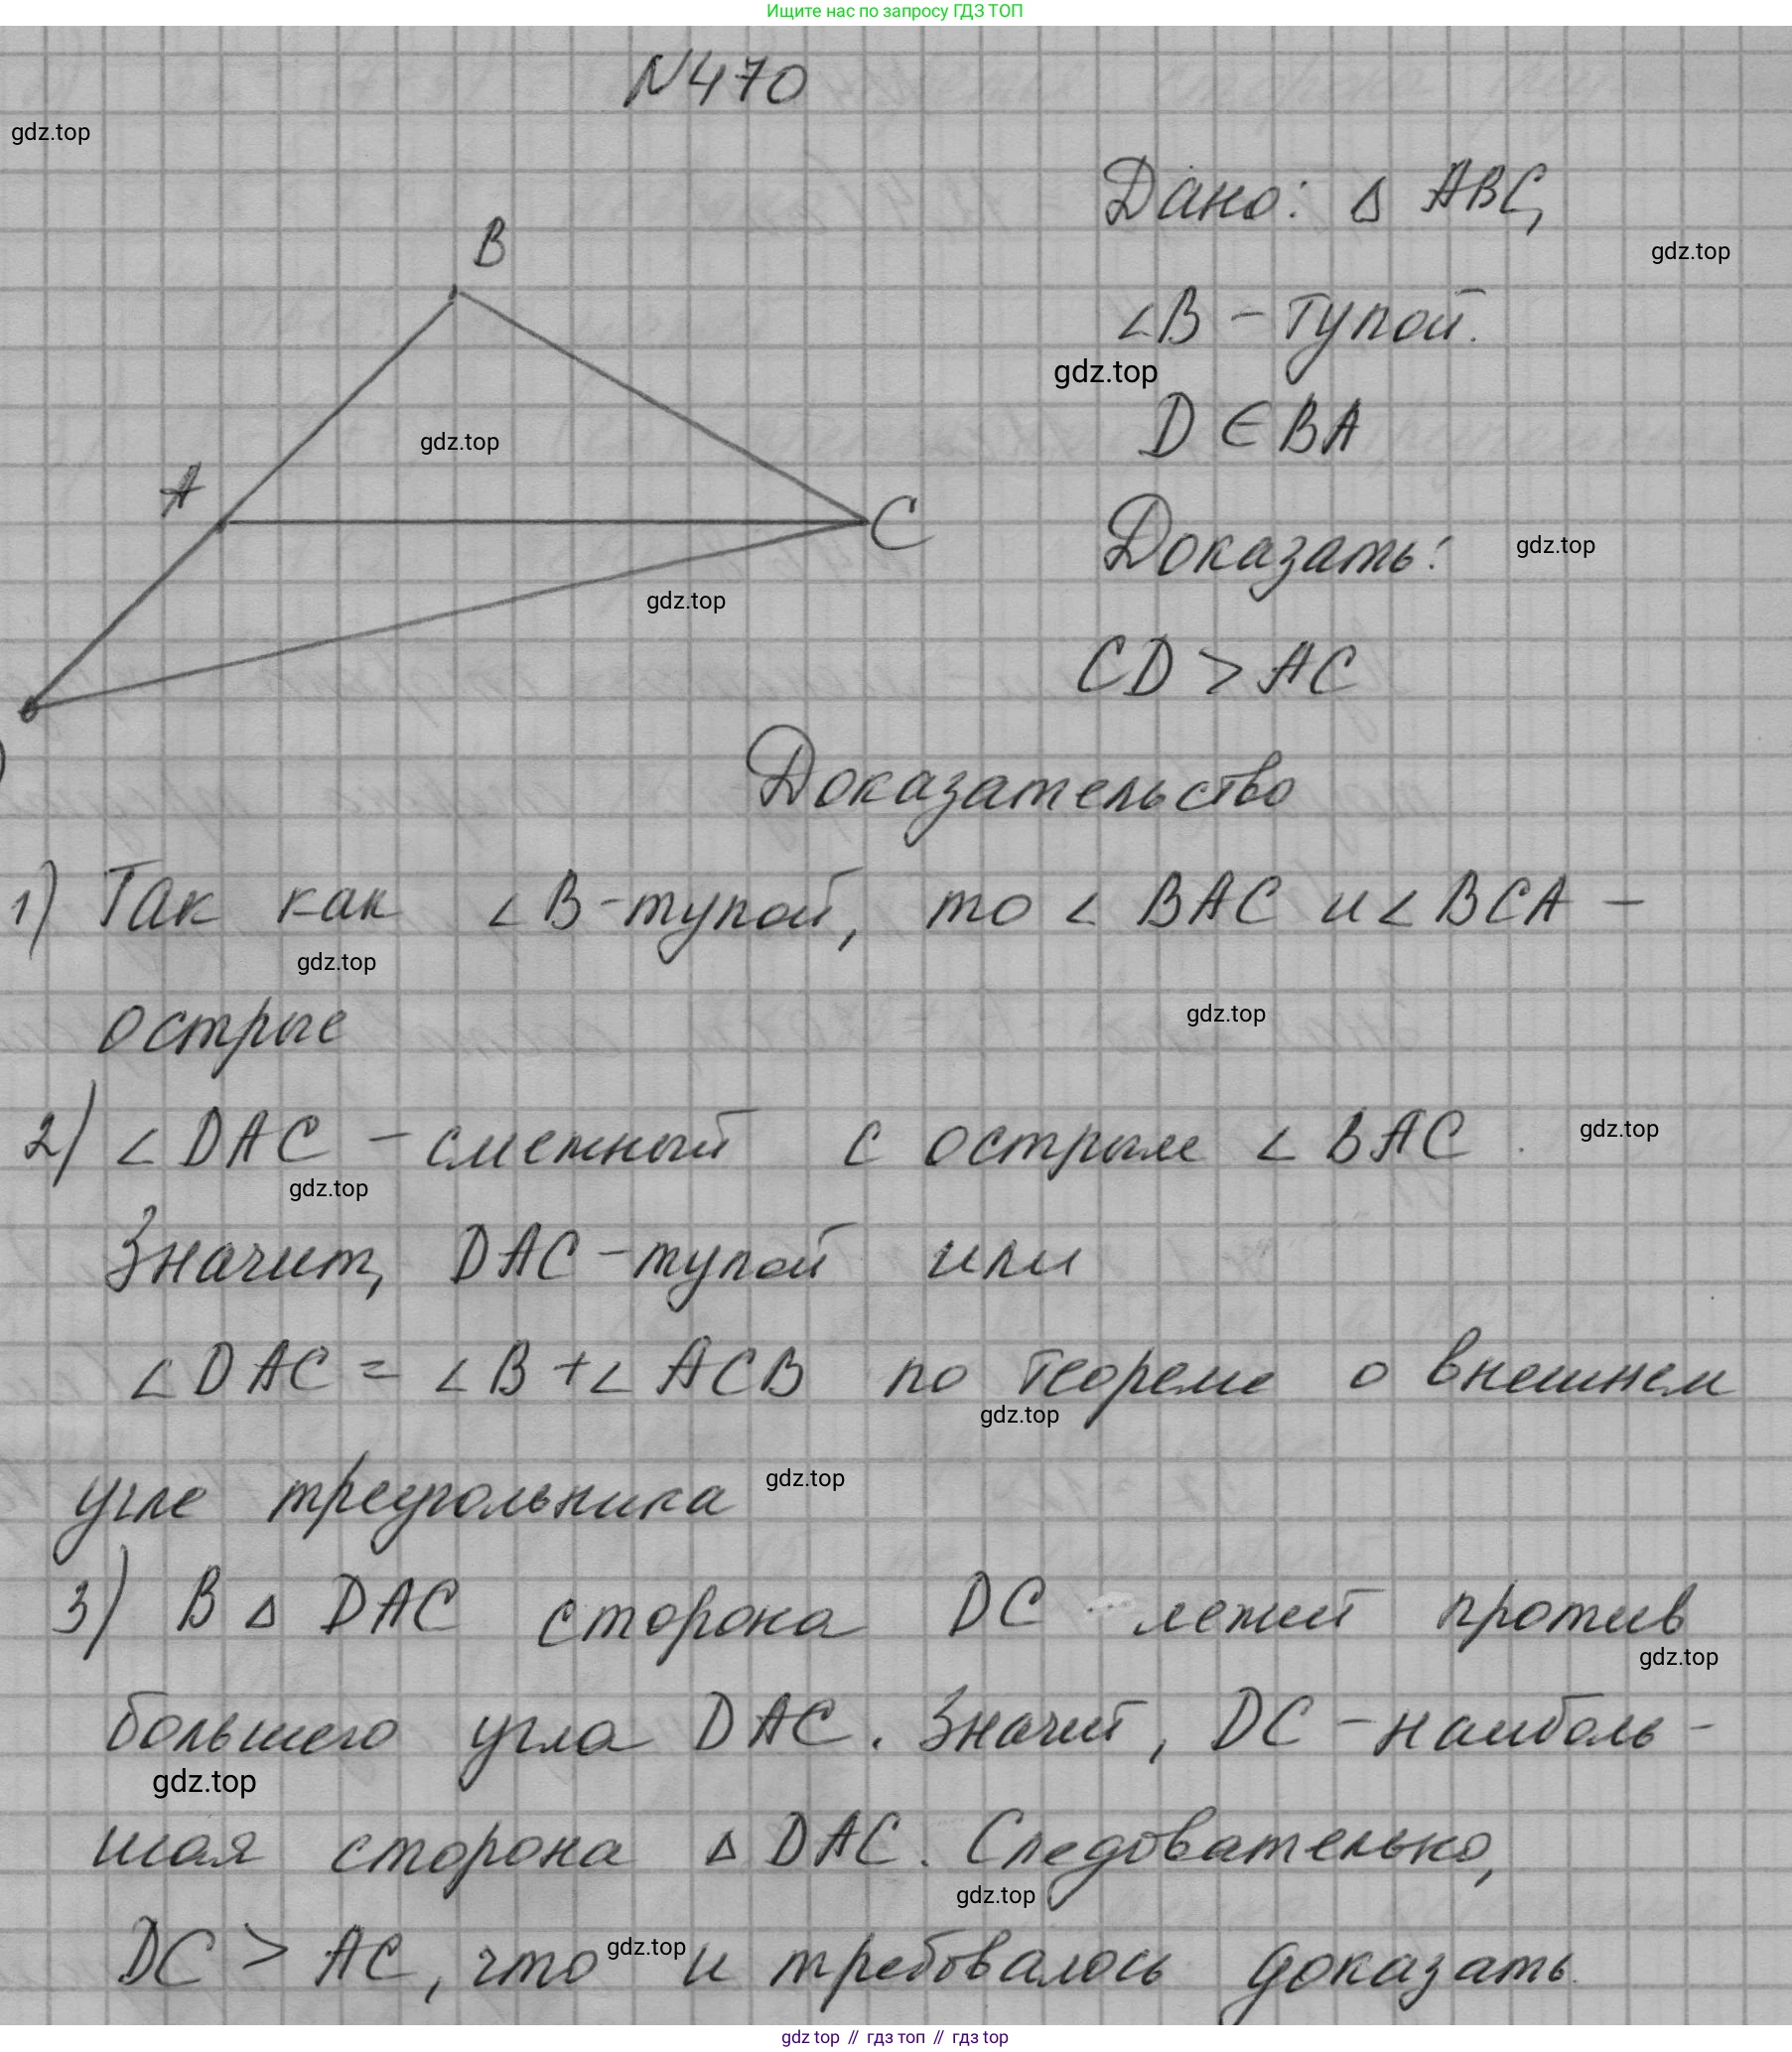 Ищите нас по запросу ГДЗ ТОП
N470
gdz.top
Дано: Δ ABC,
gdz.top
B
∠B - тупой.
gdz.top
D ∈ BA
gdz.top
A
C
Доказать:
gdz.top
gdz.top
CD > AC
Доказательство
1) Так как ∠B-тупой, то ∠ BAC и ∠ BCA -
gdz.top
острые
gdz.top
2) ∠ DAC - смежный с острым ∠ BAC.
gdz.top
gdz.top
Значит, DAC - тупой или
∠ DAC = ∠ B + ∠ ACB по теореме о внешнем
gdz.top
угле треугольника
gdz.top
3) В Δ DAC сторона DC лежит против
gdz.top
большего угла DAC. Значит, DC - наиболь-
gdz.top
шая сторона Δ DAC. Следовательно,
gdz.top
DC > AC, что и требовалось доказать.
gdz.top
gdz top // гдз топ // гдз top